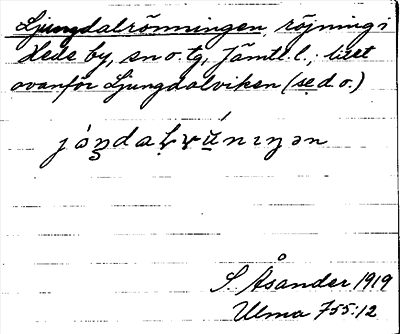 Ljungdalrönningen, röjning i
Hede by, sn o. tg, Jämtl. l.; litet
ovanför Ljungdalviken (se d. o.)
S. Åsander 1919
Ulma 755:12